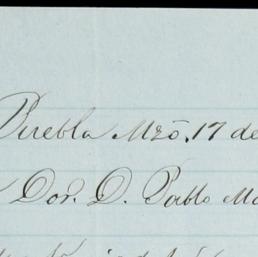 Puebla Mzō. 17 de
Dor. D. Pablo Ma